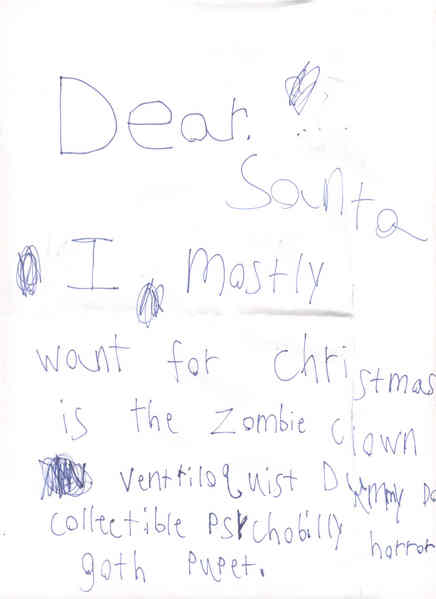 Dear.
Santa
I mostly
want for christmas
is the zombie clown
ventriloquist Dummy Do
collectible Psychobilly horror
goth pupet.